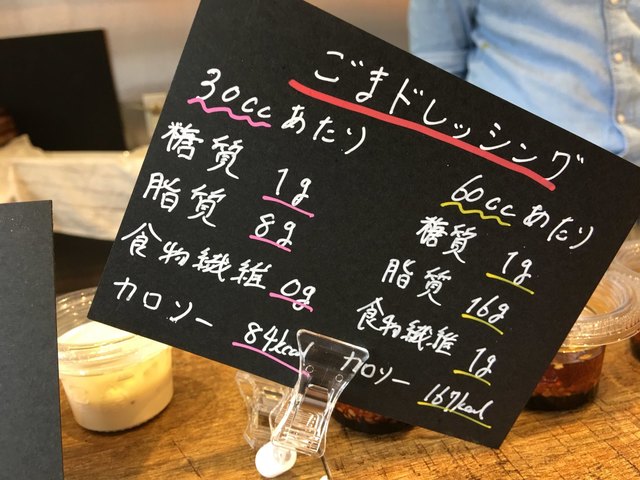 ごまドレッシング
30ccあたり
糖質 1g
脂質 8g
食物繊維 0g
カロリー 84kcal
60ccあたり
糖質 1g
脂質 16g
食物繊維 1g
カロリー 167kcal